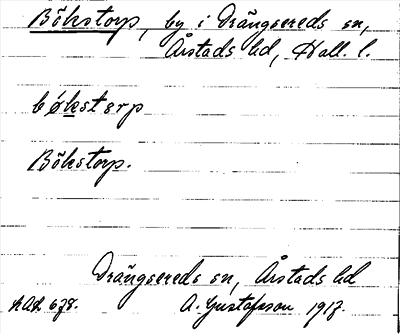 Bökstorp, by i Drängsereds sn,
Årstads hd, Hall. l.
bökstorp
Bökstorp.
Drängsereds sn, Årstads hd
A. Gustafsson 1917.